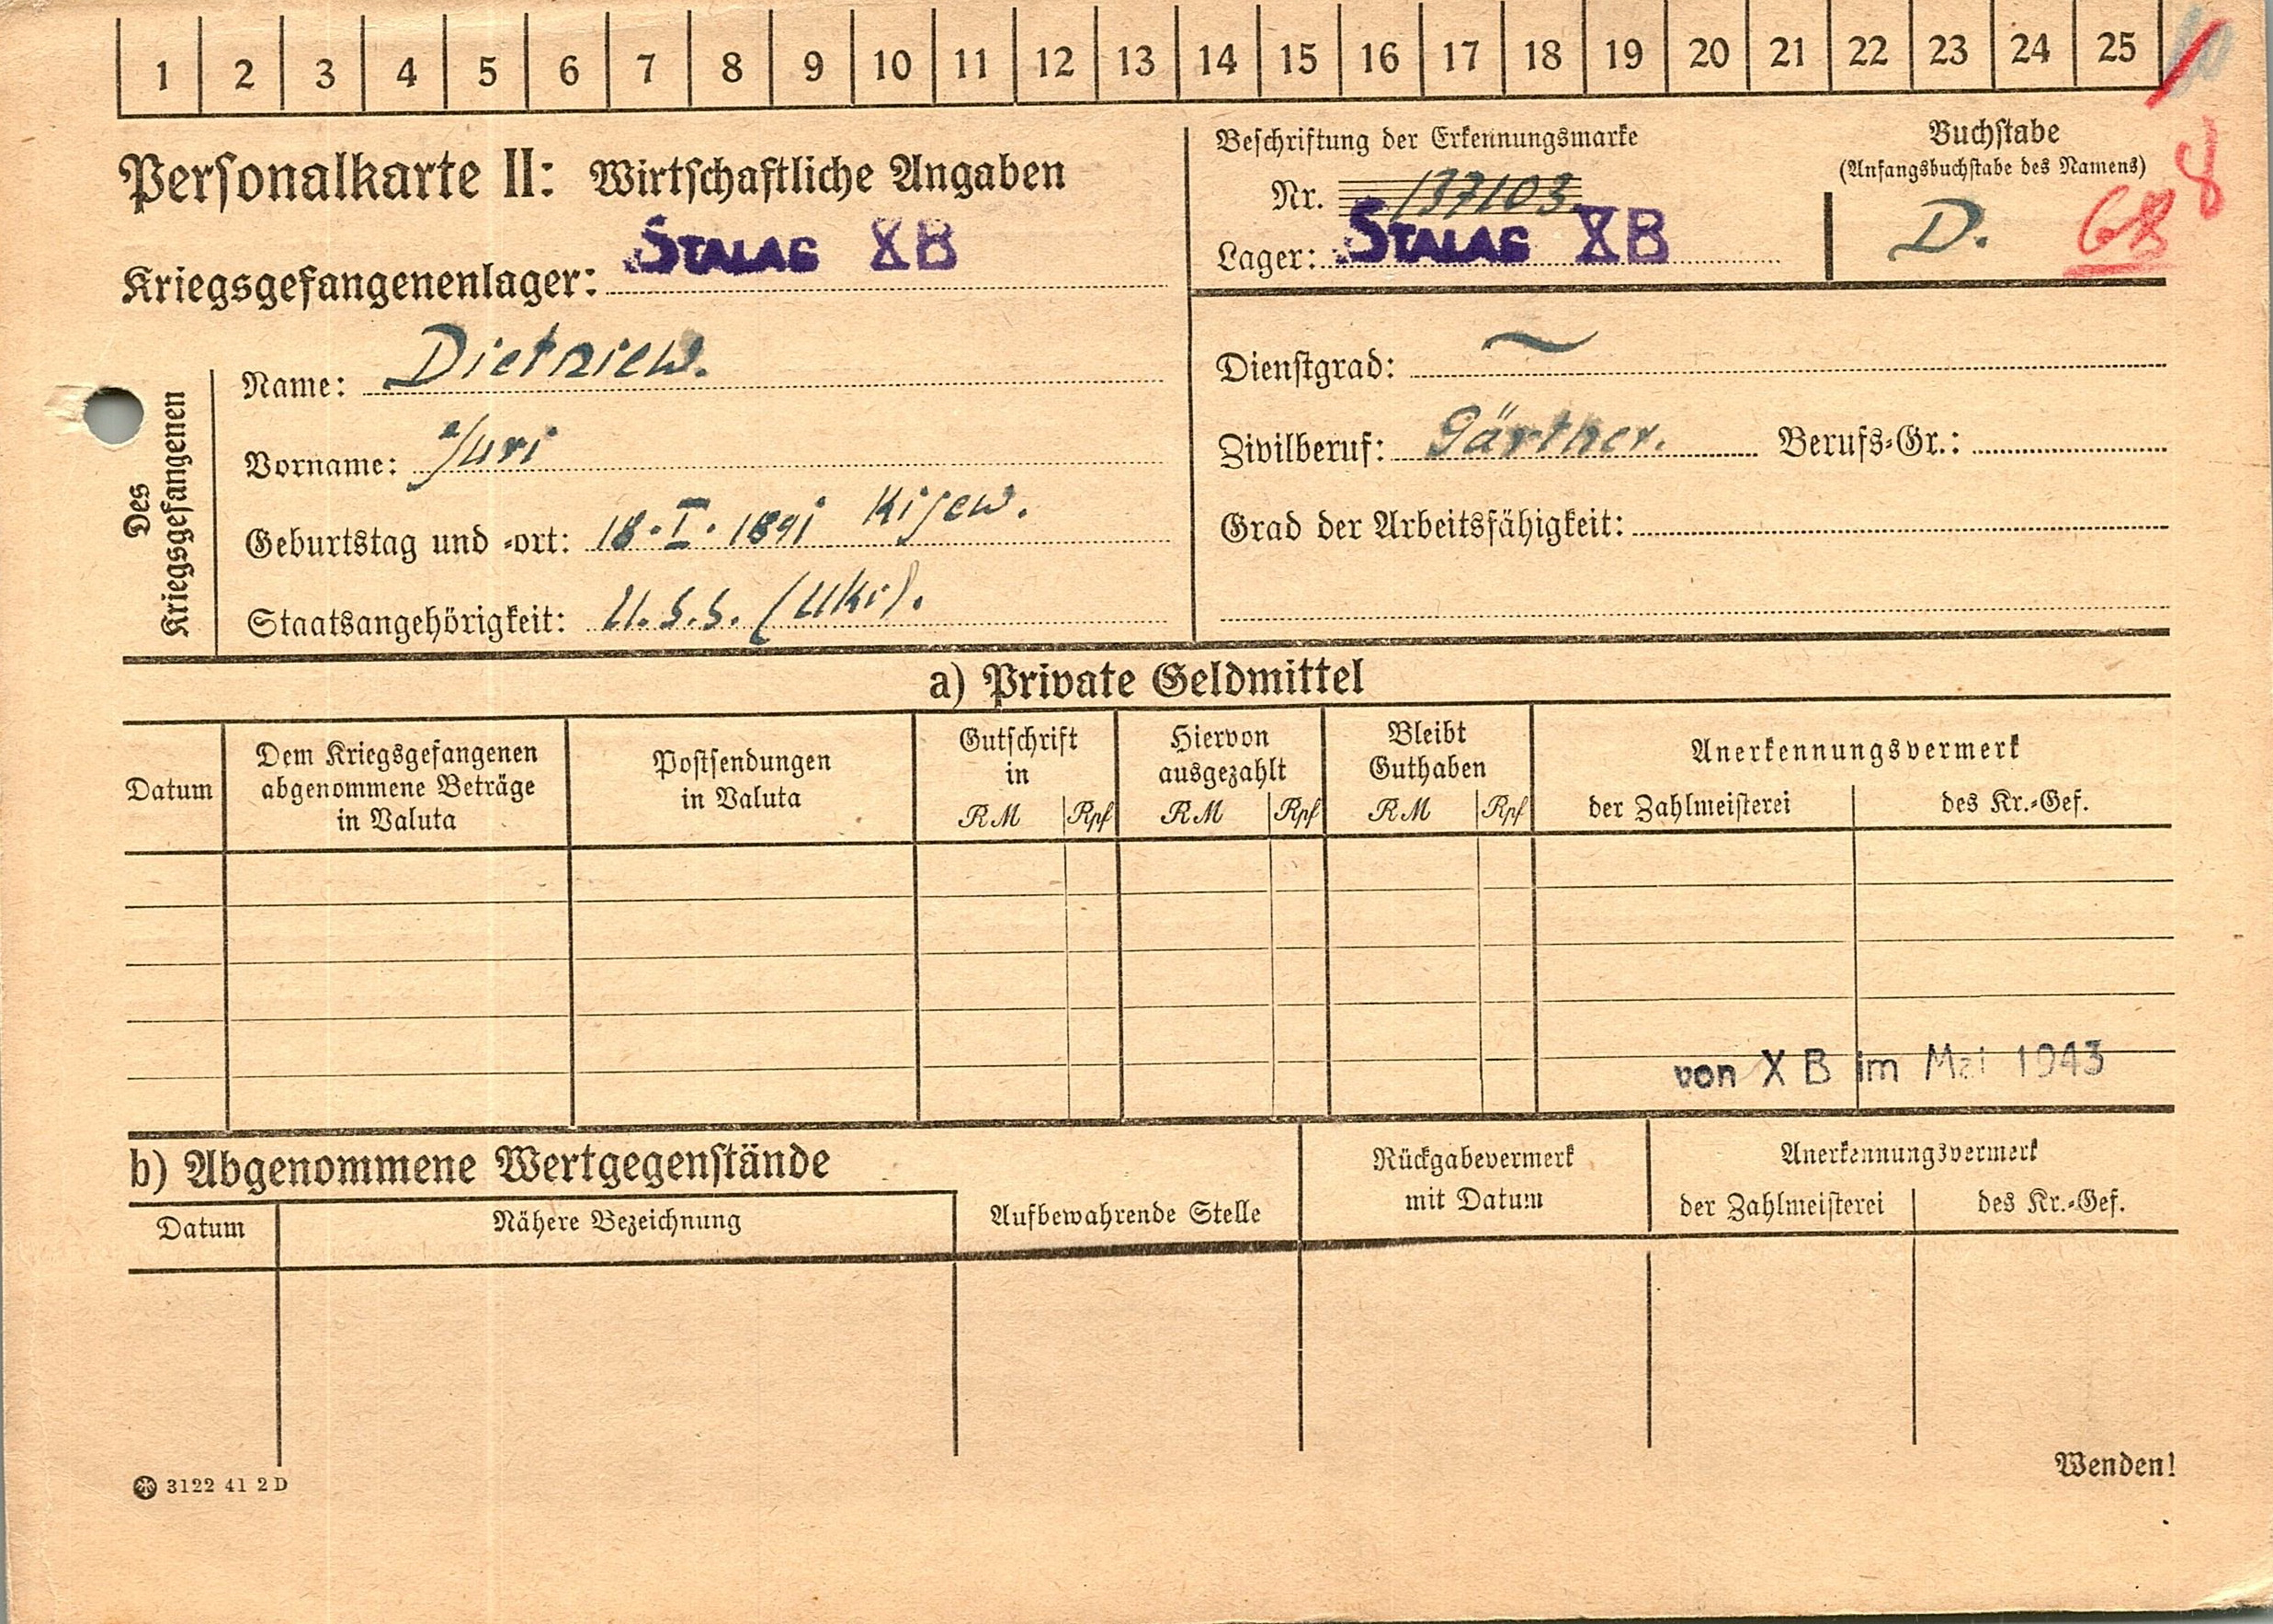 1 2 3 4 5 6 7 8 9 10 11 12 13 14 15 16 17 18 19 20 21 22 23 24 25
Personalkarte II: Wirtschaftliche Angaben
Kriegsgefangenenlager: STALAG XB
Beschriftung der Erkennungsmarke
Nr. 137103
Lager: STALAG XB
Buchstabe
(Anfangsbuchstabe des Namens)
D.
8
Des Kriegsgefangenen
Name: Dietriew.
Vorname: Juri
Geburtstag und -ort: 18.I.1891 Kijew.
Staatsangehörigkeit: U.S.S. (Ukr).
Dienstgrad: ~
Zivilberuf: Gärtner. Berufs-Gr.:
Grad der Arbeitsfähigkeit:
a) Private Geldmittel
Datum
Dem Kriegsgefangenen
abgenommene Beträge
in Valuta
Postsendungen
in Valuta
Gutschrift
in
RM Rpf
Hiervon
ausgezahlt
RM Rpf
Bleibt
Guthaben
RM Rpf
Anerkennungsvermerk
der Zahlmeisterei des Kr.-Gef.
von X B im Mai 1943
b) Abgenommene Wertgegenstände
Datum
Nähere Bezeichnung
Aufbewahrende Stelle
Rückgabevermerk
mit Datum
Anerkennungsvermerk
der Zahlmeisterei des Kr.-Gef.
Wenden!
3122 41 2D